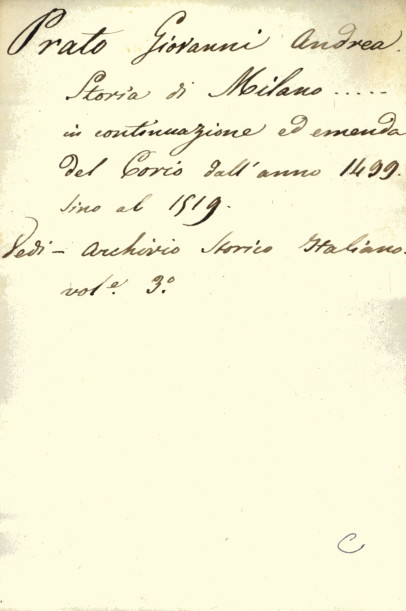 Prato Giovanni Andrea.
Storia di Milano .....
in continuazione ed emenda
del Corio dall'anno 1499.
sino al 1519.
Vedi - Archivio Storico Italiano.
vol.e 3.o
C